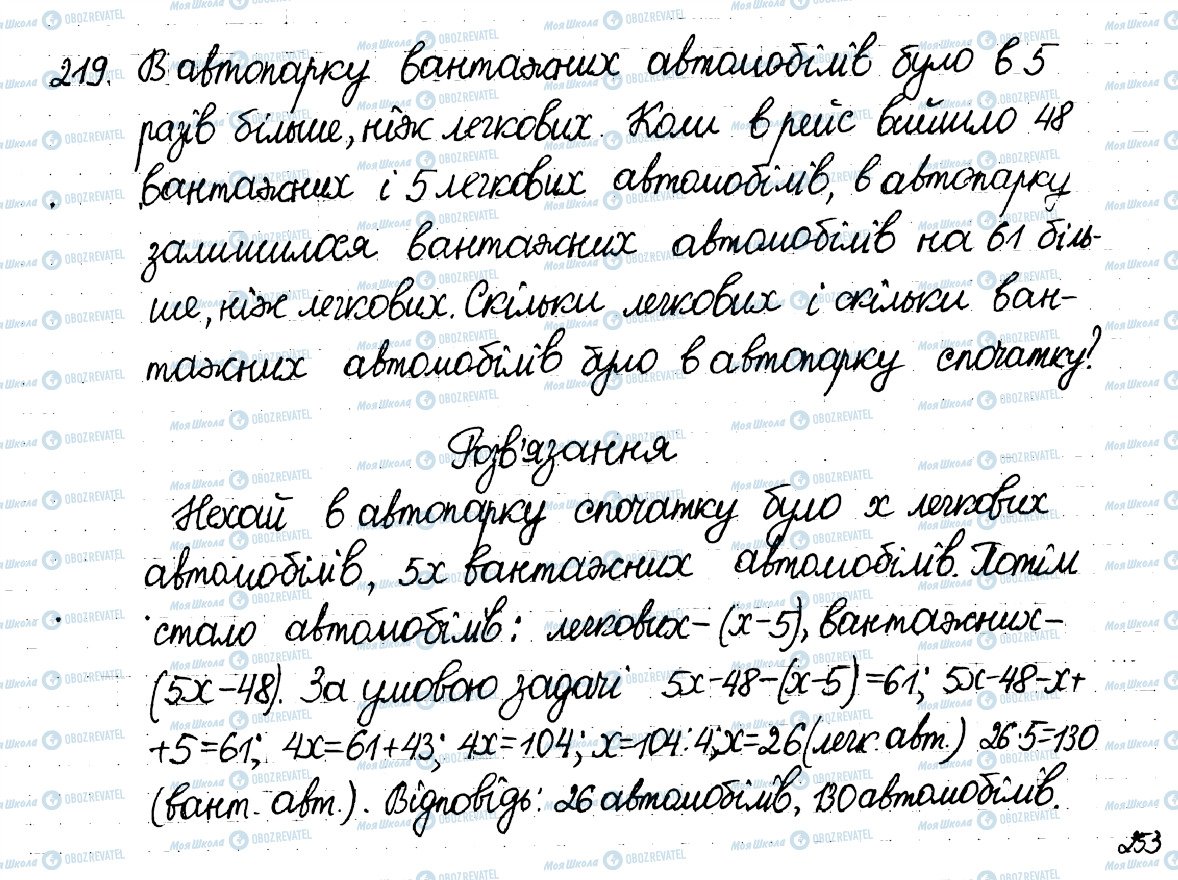 219. В автопарку вантажних автомобілів було в 5
разів більше, ніж легкових. Коли в рейс вийшло 48
вантажних і 5 легкових автомобілів, в автопарку
залишилося вантажних автомобілів на 61 біль-
ше, ніж легкових. Скільки легкових і скільки ван-
тажних автомобілів було в автопарку спочатку?
Розв'язання
Нехай в автопарку спочатку було х легкових
автомобілів, 5х вантажних автомобілів. Потім
стало автомобілів: легкових - (х-5), вантажних -
(5х-48). За умовою задачі 5х-48-(х-5)=61; 5х-48-х+
+5=61; 4х=61+43; 4х=104; х=104:4; х=26 (легк. авт.) 26·5=130
(вант. авт.). Відповідь: 26 автомобілів, 130 автомобілів.
253
МояШкола OBOZREVATEL